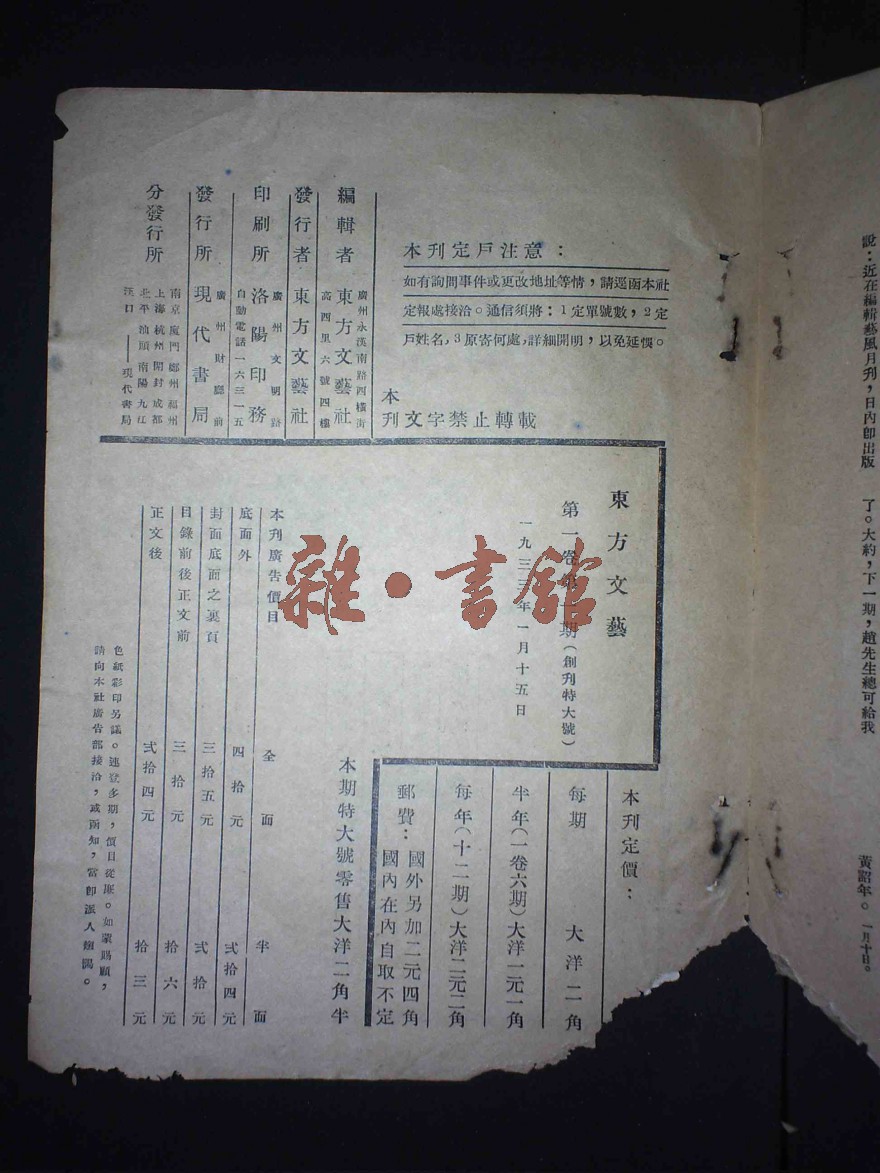 本刊定戶注意：
如有詢問事件或更改地址等情，請逕函本社
定報處接洽。通信須將：1定單號數，2定
戶姓名，3原寄何處，詳細開明，以免延悞。
本刊文字禁止轉載
編輯者 東方文藝社
廣州永漢南路四橫街
高四里六號四樓
發行者 東方文藝社
印刷所 洛陽印務
廣州文明路
自動電話一六三一五
發行所 現代書局
廣州財廳前
分發行所
南京 廈門 鄭州 福州
上海 杭州 開封 成都
北平 汕頭 南陽 九江
漢口——現代書局
東方文藝
第一卷第一期（創刊特大號）
一九三三年一月十五日
本刊定價：
每期 大洋二角
半年（一卷六期）大洋一元一角
每年（十二期）大洋二元二角
郵費：國外另加二元四角
國內在內自取不定
本期特大號零售大洋二角半
本刊廣告價目 全面 半面
底面外 四拾元 弍拾四元
封面底面之裏頁 三拾五元 弍拾元
目錄前後正文前 三拾元 拾六元
正文後 弍拾四元 拾三元
色紙彩印另議。連登多期，價目從廉。如蒙賜顧，
請向本社廣告部接洽，或函知，當即派人趨謁。
說：近在編輯藝風月刊，日內卽出版 了。大約，下一期，趙先生總可給我
黃韶年。一月十日。
雜·書館